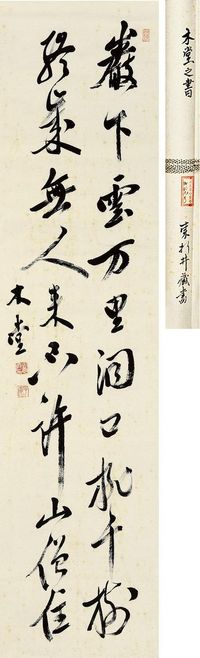 巖下雲万里洞口桃千樹
終歲無人来只許山僧住
木堂
木堂之書